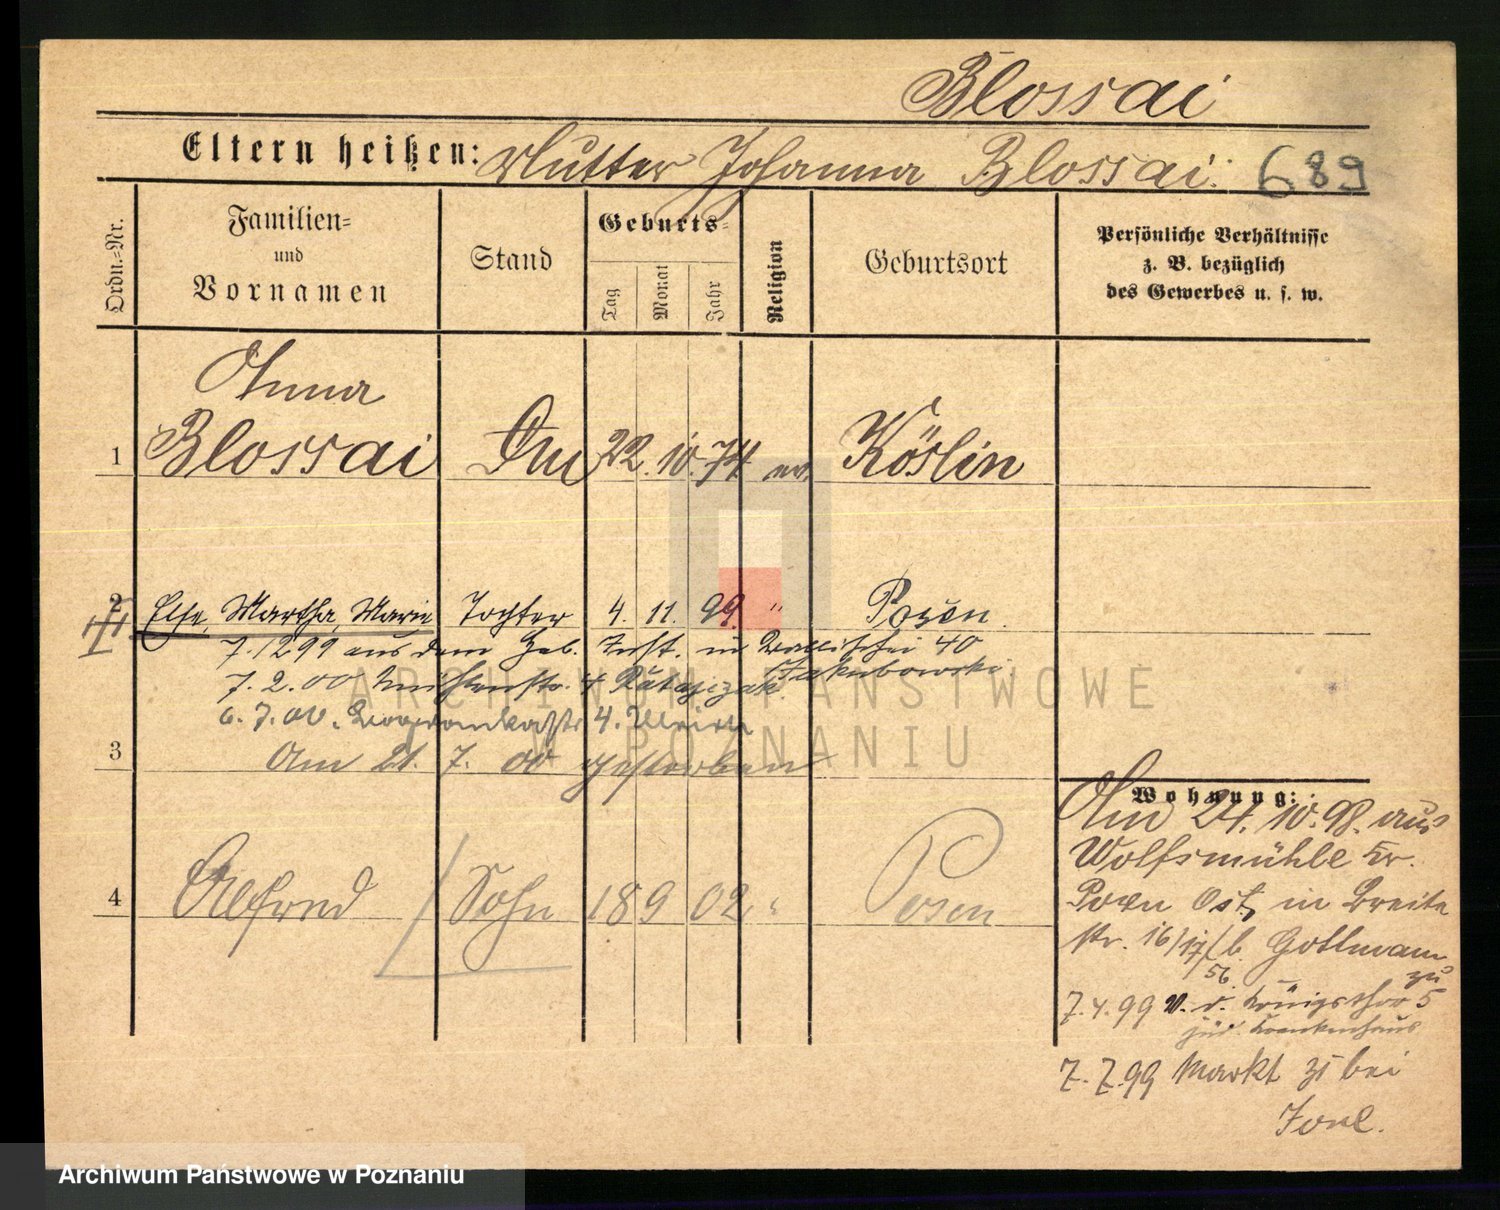 Blossai
Eltern heißen: Mutter Johanna Blossai. 689
Ordn.-Nr.
Familien- und Vornamen
Stand
Geburts-
Tag Monat Jahr
Religion
Geburtsort
Persönliche Verhältnisse
z. B. bezüglich
des Gewerbes u. s. w.
Anna
1 Blossai 22. 10. 74 ev. Köslin
2 Else, Martha, Marie Tochter 4. 11. 99. " Posen.
7.12 99 aus dem Heb. Inst. in Wallischei 40
Jakubowski
7. 2. 00 Mühlenstr. 4 Ratajczak
6. 7. 00. 4.
3 Am 21. 7. 00 gestorben
4 Alfred / Sohn 18 9 02 " Posen
Wohnung:
Am 24. 10. 98. aus
Wolfsmühle Kr.
Posen Ost, in Breite
str. 16/17 b.
56.
7. 4. 99 v. d. Königsthor 5
jüd. Krankenhaus
7. 7. 99 Markt bei
ARCHIWUM PAŃSTWOWE
W POZNANIU
Archiwum Państwowe w Poznaniu